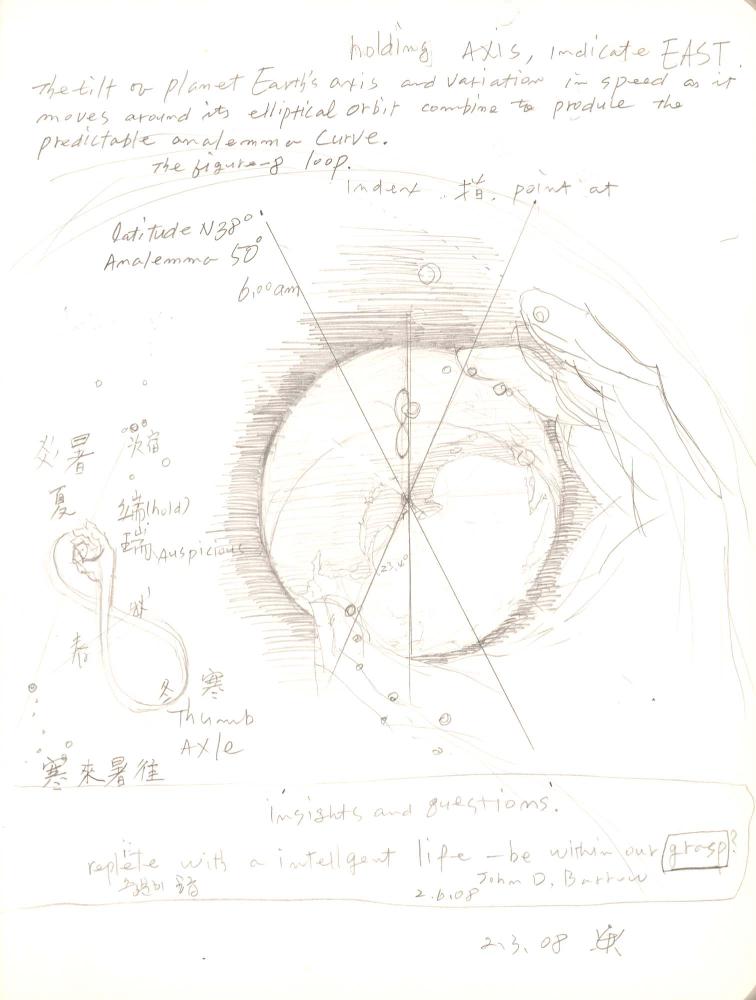 holding AXIS, indicate EAST.
The tilt of planet Earth's axis and variation in speed as it
moves around its elliptical orbit combine to produce the
predictable analemma curve.
The figure-8 loop.
Index 指 point at
Latitude N38°
Analemma 50°
6.00am
炎暑
次宿
夏
端(hold)
瑞 Auspicious
23.4°
秋
春
冬 寒
Thumb
AXle
寒來暑往
insights and questions.
replete with a intellgent life – be within our grasp?
John D. Barrow
2.6.08
2.3.08